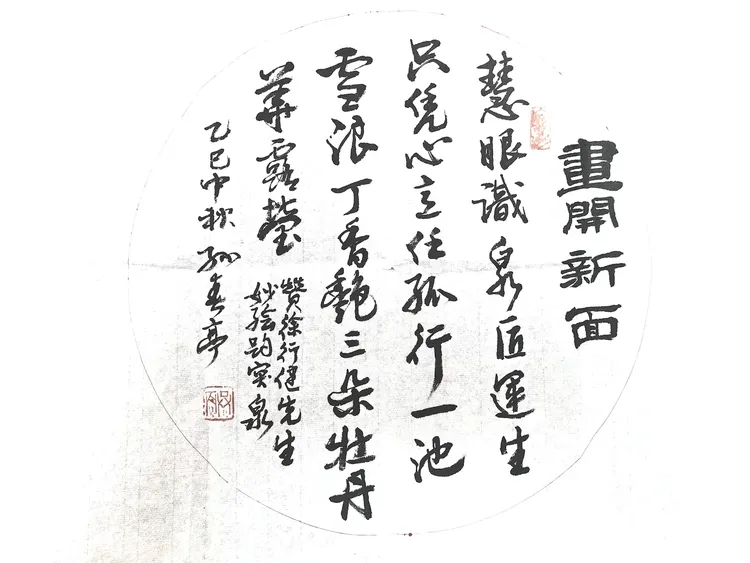 畫開新面
慧眼識泉匠運生
只凭心立任孤行一池
雪浪丁香艷三朵牡丹
華露瑩
贊徐行健先生
妙绘趵突泉
乙巳中秋 孙春亭